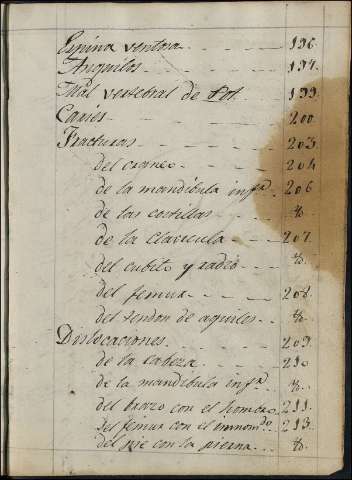 Espina ventosa 196.
Anquilos 197.
Mal vertebral de Pot. 199.
Caries 200
Fracturas 203.
del craneo 204
de la mandibula infª 206
de las costillas %
de la clavicula 207.
del cubito y radio %.
del femur 208.
del tendon de aquiles %
Dislocaciones 209.
de la cabeza 210
de la mandibula infª %.
del brazo con el homoso 211.
del femur con el innomdo 213.
del pie con la pierna %.